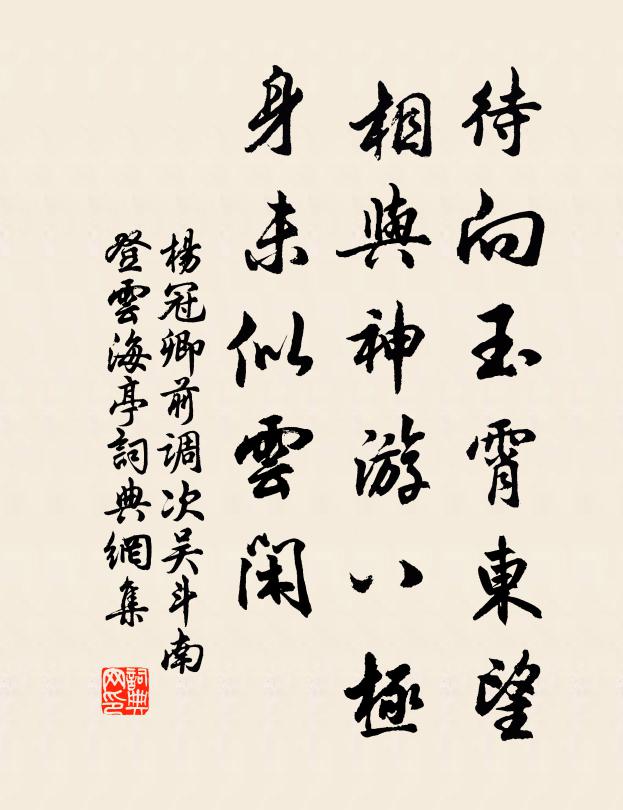 待向玉霄東望
相與神游八極
身未似雲閑
楊冠卿前调次吴斗南
登雲海亭詞典網集
詞典網印